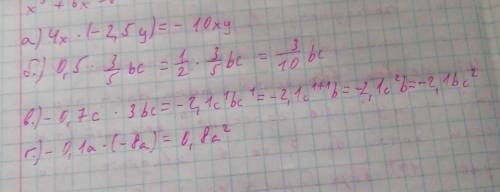 а) 4x · (-2,5y) = - 10xy
б.) 0,5 · 3/5 bc = 1/2 · 3/5 bc = 3/10 bc
в.) - 0,7c · 3bc = -2,1c¹bc¹ = -2,1c¹⁺¹b = -2,1c²b = -2,1bc²
г.) - 0,1a · (-8a) = 0,8a²